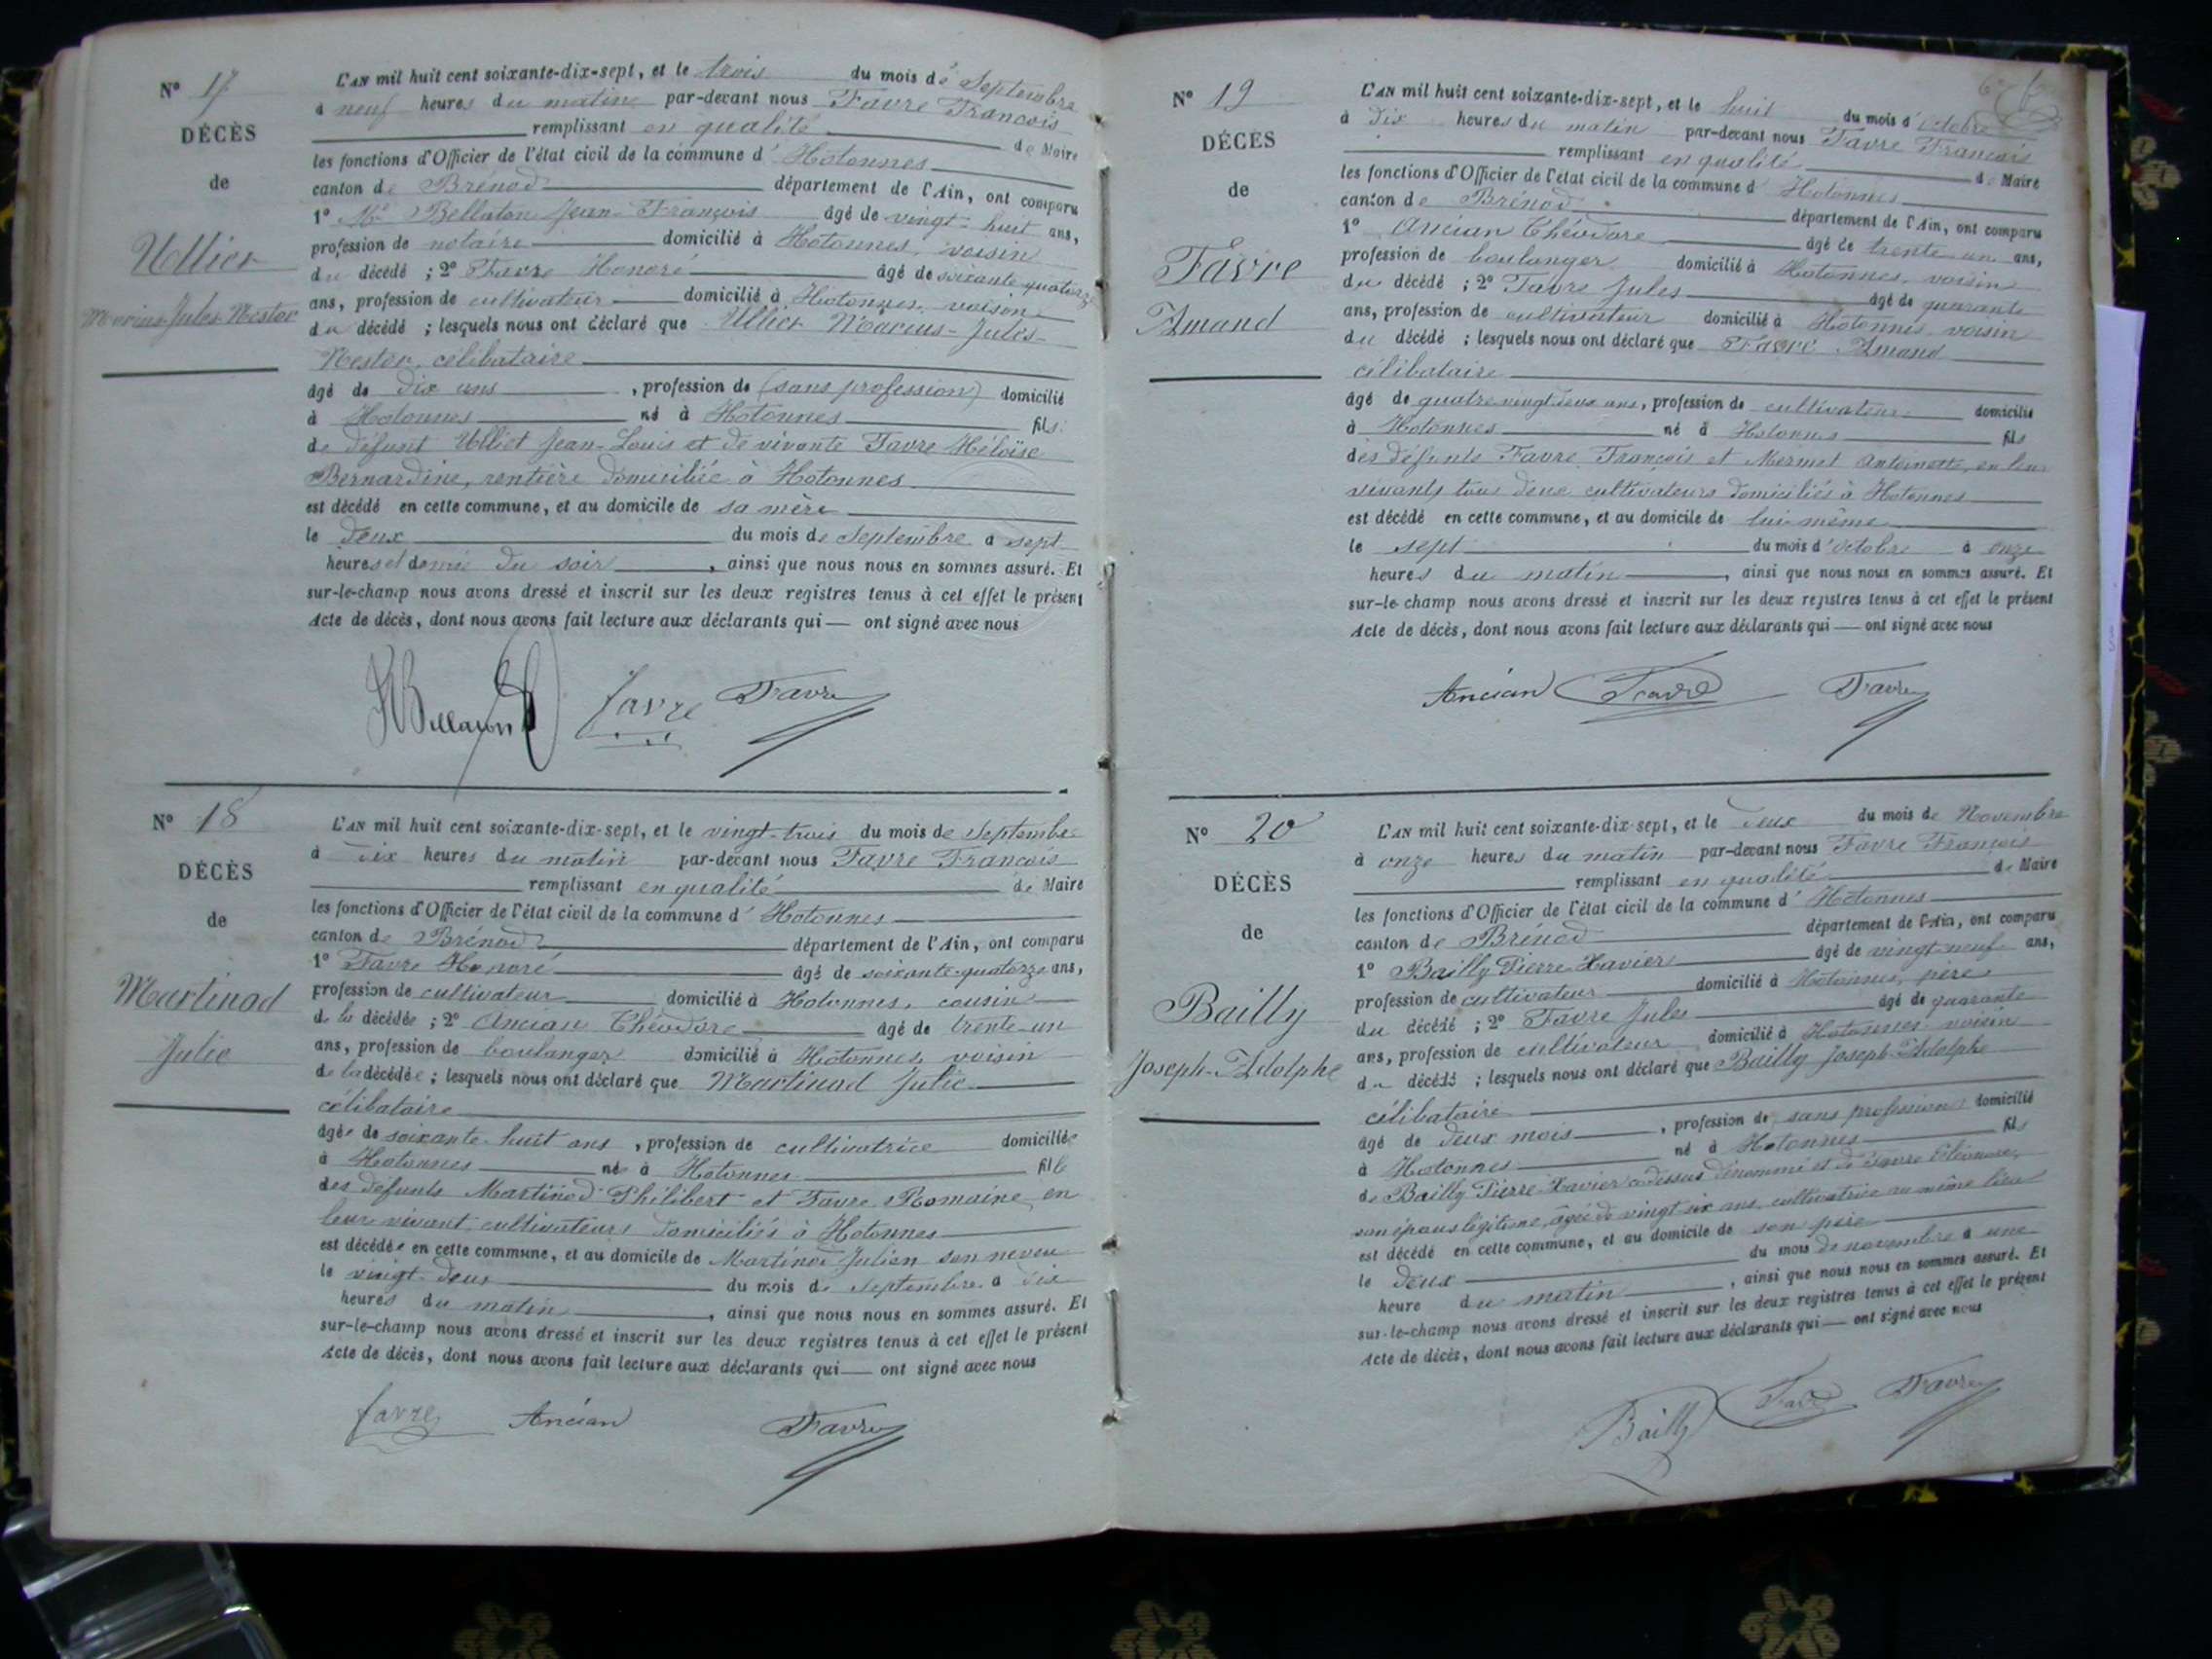 N° 17
DÉCÈS
de
Ulliet
Marius-Jules-Nestor
L'AN mil huit cent soixante-dix-sept, et le trois du mois de Septembre
à neuf heures du matin par-devant nous Favre François
remplissant en qualité de Maire
les fonctions d'Officier de l'état civil de la commune d'Hotonnes
canton de Brénod département de l'Ain, ont comparu
1° Me Bellaton Jean-François âgé de vingt-huit ans,
profession de notaire domicilié à Hotonnes, voisin
du décédé ; 2° Favre Honoré âgé de soixante quatorze
ans, profession de cultivateur domicilié à Hotonnes, voisin
du décédé ; lesquels nous ont déclaré que Ulliet Marius-Jules-
Nestor, célibataire
âgé de dix ans, profession de (sans profession) domicilié
à Hotonnes né à Hotonnes fils
de défunt Ulliet Jean-Louis et de vivante Favre Héloïse
Bernardine, rentière domiciliée à Hotonnes
est décédé en cette commune, et au domicile de sa mère
le deux du mois de Septembre à sept
heures et demie du soir, ainsi que nous nous en sommes assuré. Et
sur-le-champ nous avons dressé et inscrit sur les deux registres tenus à cet effet le présent
Acte de décès, dont nous avons fait lecture aux déclarants qui — ont signé avec nous
Favre Favre
N° 18
DÉCÈS
de
Martinod
Julie
L'AN mil huit cent soixante-dix-sept, et le vingt-trois du mois de Septembre
à dix heures du matin par-devant nous Favre François
remplissant en qualité de Maire
les fonctions d'Officier de l'état civil de la commune d'Hotonnes
canton de Brénod département de l'Ain, ont comparu
1° Favre Honoré âgé de soixante-quatorze ans,
profession de cultivateur domicilié à Hotonnes, cousin
de la décédée ; 2° Ancian Théodore âgé de trente-un
ans, profession de boulanger domicilié à Hotonnes, voisin
de la décédée ; lesquels nous ont déclaré que Martinod Julie
célibataire
âgée de soixante-huit ans, profession de cultivatrice domiciliée
à Hotonnes née à Hotonnes fille
des défunts Martinod Philibert et Favre Romaine, en
leur vivant cultivateurs domiciliés à Hotonnes
est décédée en cette commune, et au domicile de Martinod Julien son neveu
le vingt-deux du mois de Septembre à dix
heures du matin, ainsi que nous nous en sommes assuré. Et
sur-le-champ nous avons dressé et inscrit sur les deux registres tenus à cet effet le présent
Acte de décès, dont nous avons fait lecture aux déclarants qui — ont signé avec nous
Favre Ancian Favre
N° 19
DÉCÈS
de
Favre
Amand
L'AN mil huit cent soixante-dix-sept, et le huit du mois d'octobre
à dix heures du matin par-devant nous Favre François
remplissant en qualité de Maire
les fonctions d'Officier de l'état civil de la commune d'Hotonnes
canton de Brénod département de l'Ain, ont comparu
1° Ancian Théodore âgé de trente un ans,
profession de boulanger domicilié à Hotonnes, voisin
du décédé ; 2° Favre Jules âgé de quarante
ans, profession de cultivateur domicilié à Hotonnes voisin
du décédé ; lesquels nous ont déclaré que Favre Amand
célibataire
âgé de quatre vingt deux ans, profession de cultivateur domicilié
à Hotonnes né à Hotonnes fils
des défunts Favre François et Mermet Antoinette, en leur
vivants tous deux cultivateurs domiciliés à Hotonnes
est décédé en cette commune, et au domicile de lui-même
le sept du mois d'octobre à onze
heures du matin, ainsi que nous nous en sommes assuré. Et
sur-le-champ nous avons dressé et inscrit sur les deux registres tenus à cet effet le présent
Acte de décès, dont nous avons fait lecture aux déclarants qui — ont signé avec nous
Ancian Favre Favre
N° 20
DÉCÈS
de
Bailly
Joseph-Adolphe
L'AN mil huit cent soixante-dix-sept, et le deux du mois de Novembre
à onze heures du matin par-devant nous Favre François
remplissant en qualité de Maire
les fonctions d'Officier de l'état civil de la commune d'Hotonnes
canton de Brénod département de l'Ain, ont comparu
1° Bailly Pierre-Xavier âgé de vingt-neuf ans,
profession de cultivateur domicilié à Hotonnes, père
du décédé ; 2° Favre Jules âgé de quarante
ans, profession de cultivateur domicilié à Hotonnes voisin
du décédé ; lesquels nous ont déclaré que Bailly Joseph-Adolphe
célibataire
âgé de deux mois, profession de sans profession domicilié
à Hotonnes né à Hotonnes fils
de Bailly Pierre-Xavier ci-dessus dénommé et de Favre Eléonore,
son épouse légitime, âgée de vingt-six ans, cultivatrice au même lieu
est décédé en cette commune, et au domicile de son père
le deux du mois de novembre à une
heure du matin, ainsi que nous nous en sommes assuré. Et
sur-le-champ nous avons dressé et inscrit sur les deux registres tenus à cet effet le présent
Acte de décès, dont nous avons fait lecture aux déclarants qui — ont signé avec nous
Bailly Favre Favre